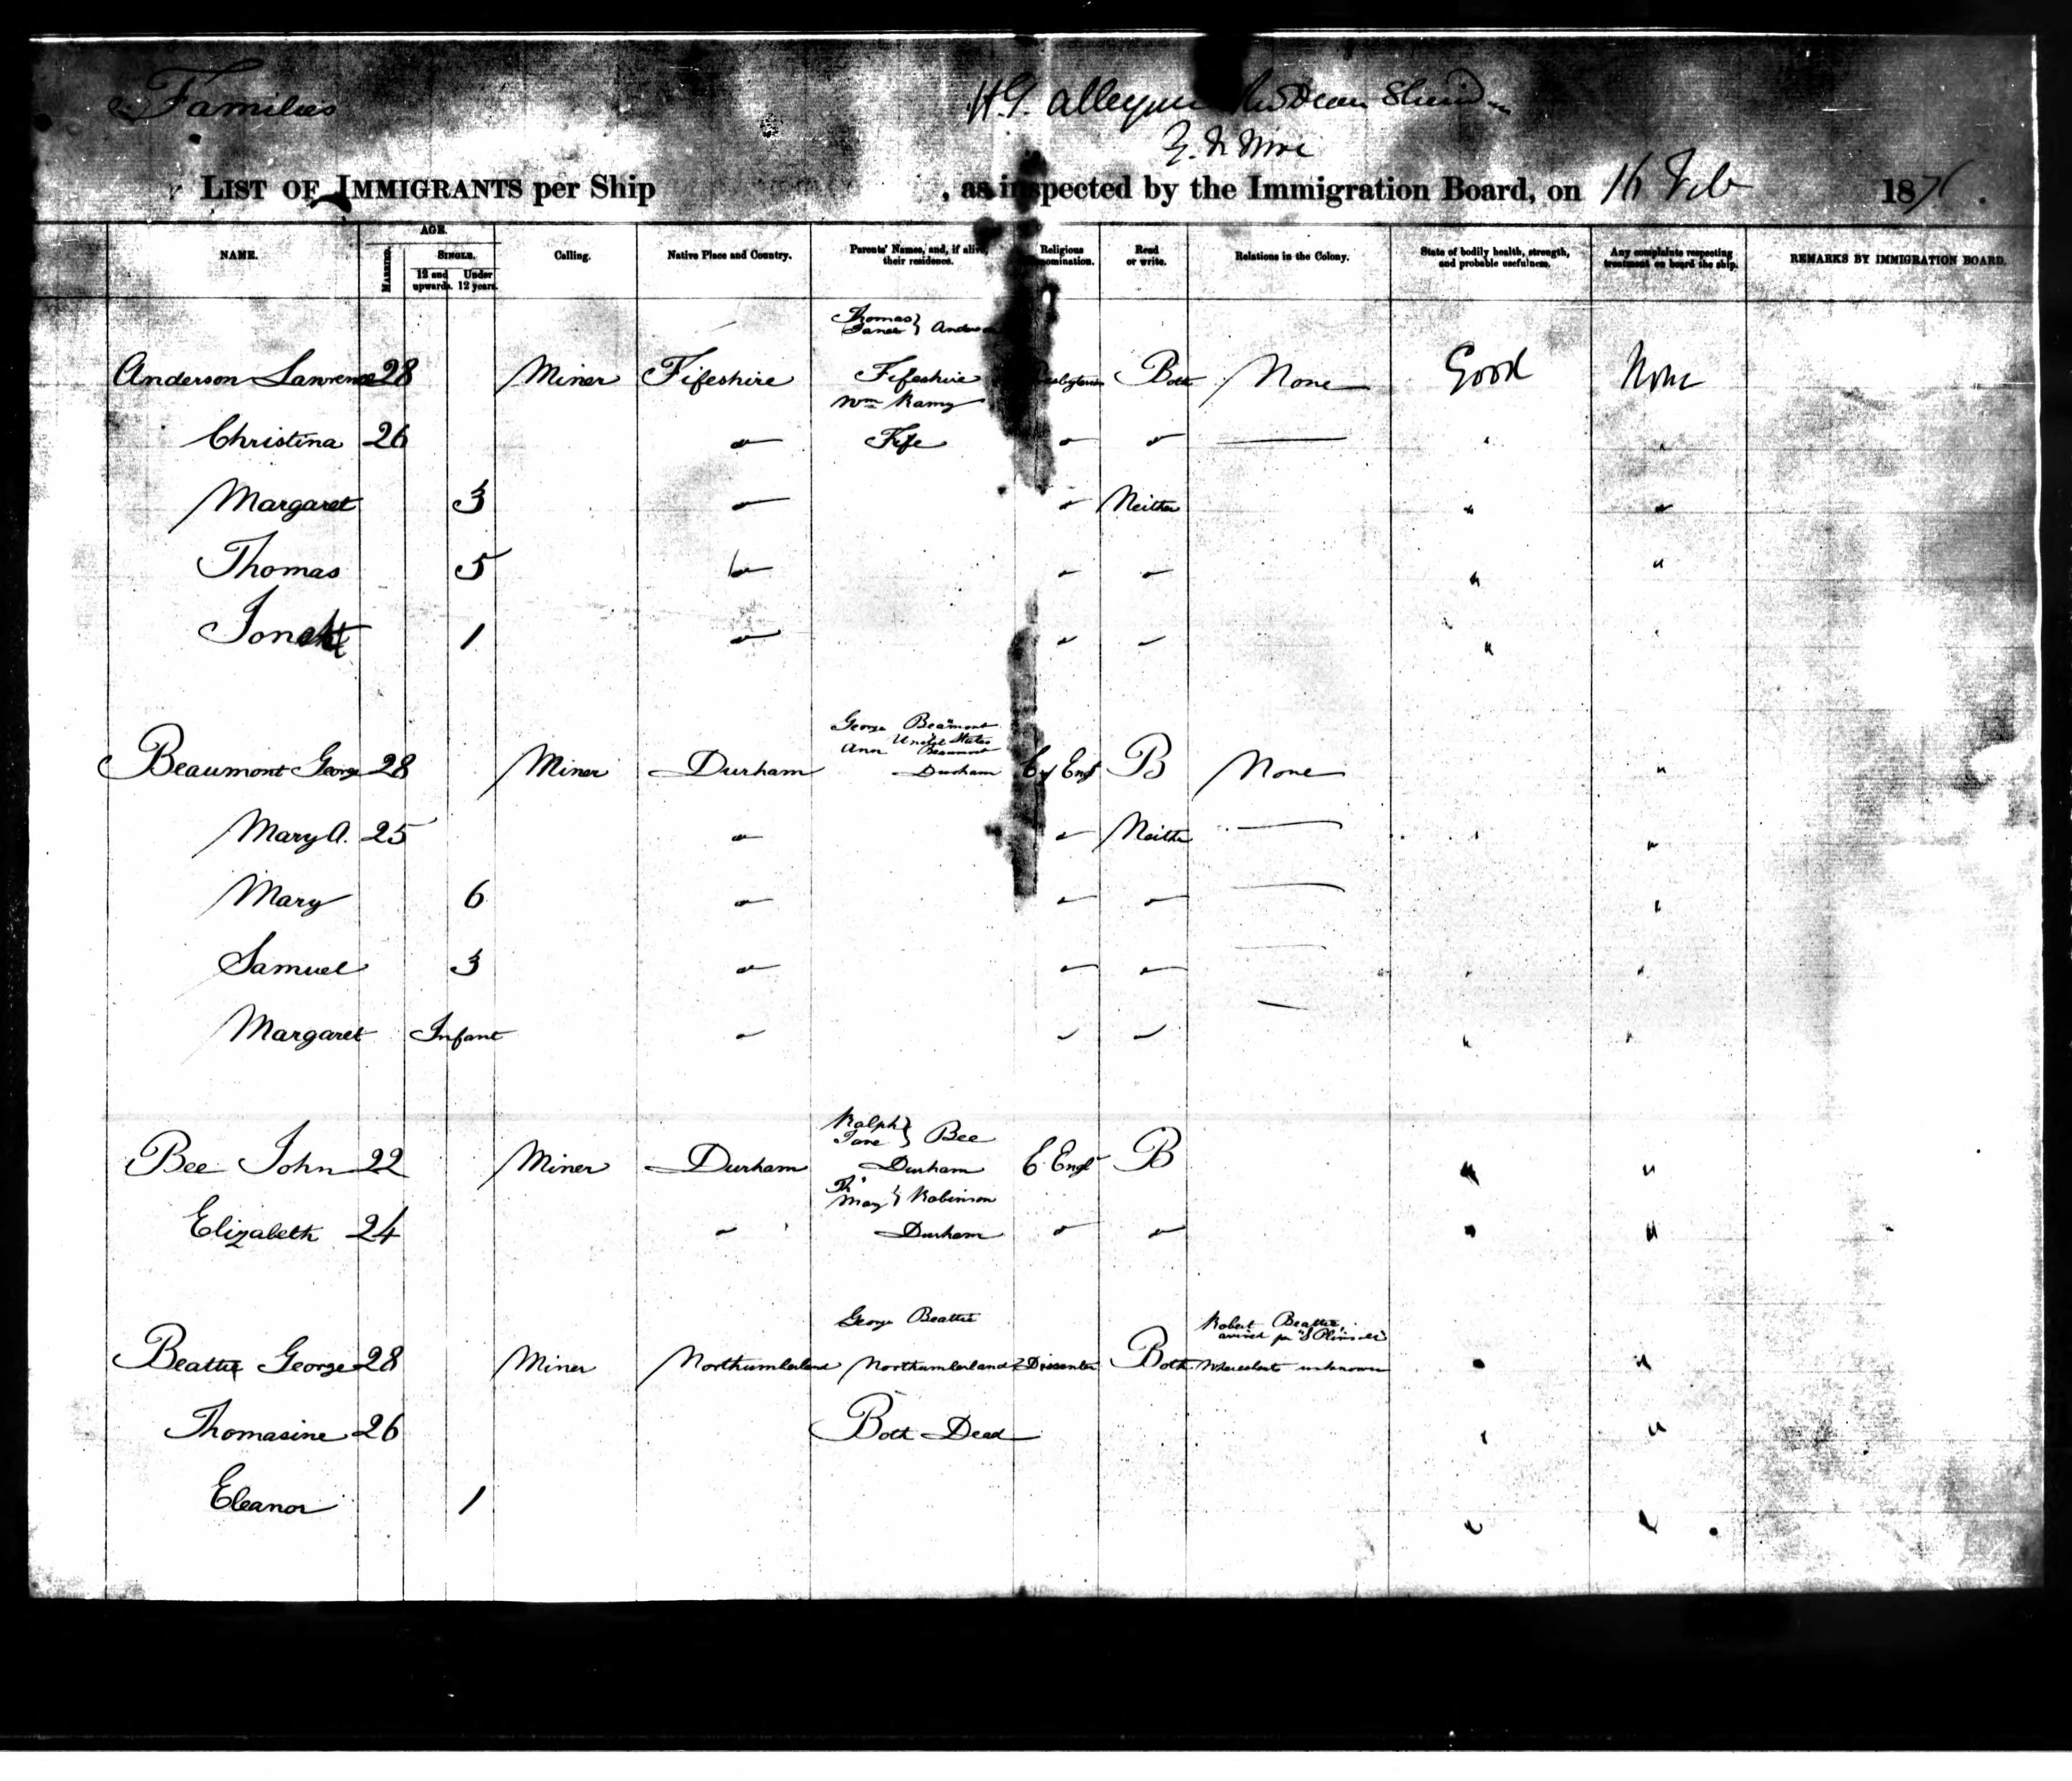 Families
H.G. Alleyne
LIST OF IMMIGRANTS per Ship , as inspected by the Immigration Board, on 16 Feb 187
NAME. AGE. MARRIED. SINGLE. 12 and upwards. Under 12 years. Calling. Native Place and Country. Parents' Names, and, if alive, their residence. Religious Denomination. Read or write. Relations in the Colony. State of bodily health, strength, and probable usefulness. Any complaints respecting treatment on board the ship. REMARKS BY IMMIGRATION BOARD.
Thomas } Anderson
Janet
Anderson Lawrence 28 Miner Fifeshire Fifeshire Presbyterian Both None Good None
Wm Ramy
Christina 26 " Fife " " "
Margaret 3 " " Neither " "
Thomas 5 " " " " "
Janet 1 " " " "
George Beaumont
United States
Ann Beaumont
Beaumont George 28 Miner Durham Durham C of Engd B None "
Mary A. 25 " " Neither "
Mary 6 " " " "
Samuel 3 " " " "
Margaret Infant " " " " "
Ralph } Bee
Jane
Bee John 22 Miner Durham Durham C. Engd B " "
Th' } Robinson
Mary
Elizabeth 24 " Durham " " " "
George Beattie
Robert Beattie,
arrived per
Beattie George 28 Miner Northumberland Northumberland Dissenter Both Whereabouts unknown " "
Thomasine 26 Both Dead " "
Eleanor 1 " "